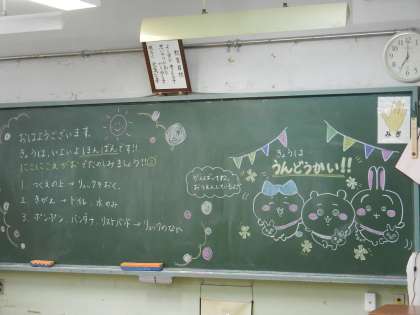 おはようございます。
きょうは、いよいよほんばんです!!
にこにこえがおでたのしみましょう!!
1. つくえの上→リュックをおく。
2. きがえ→トイレ、水のみ
3. ポンポン、バンダナ、リストバンド→リュックの
がんばってね。
おうえんしているよ
きょうは
うんどうかい!!
みぎ